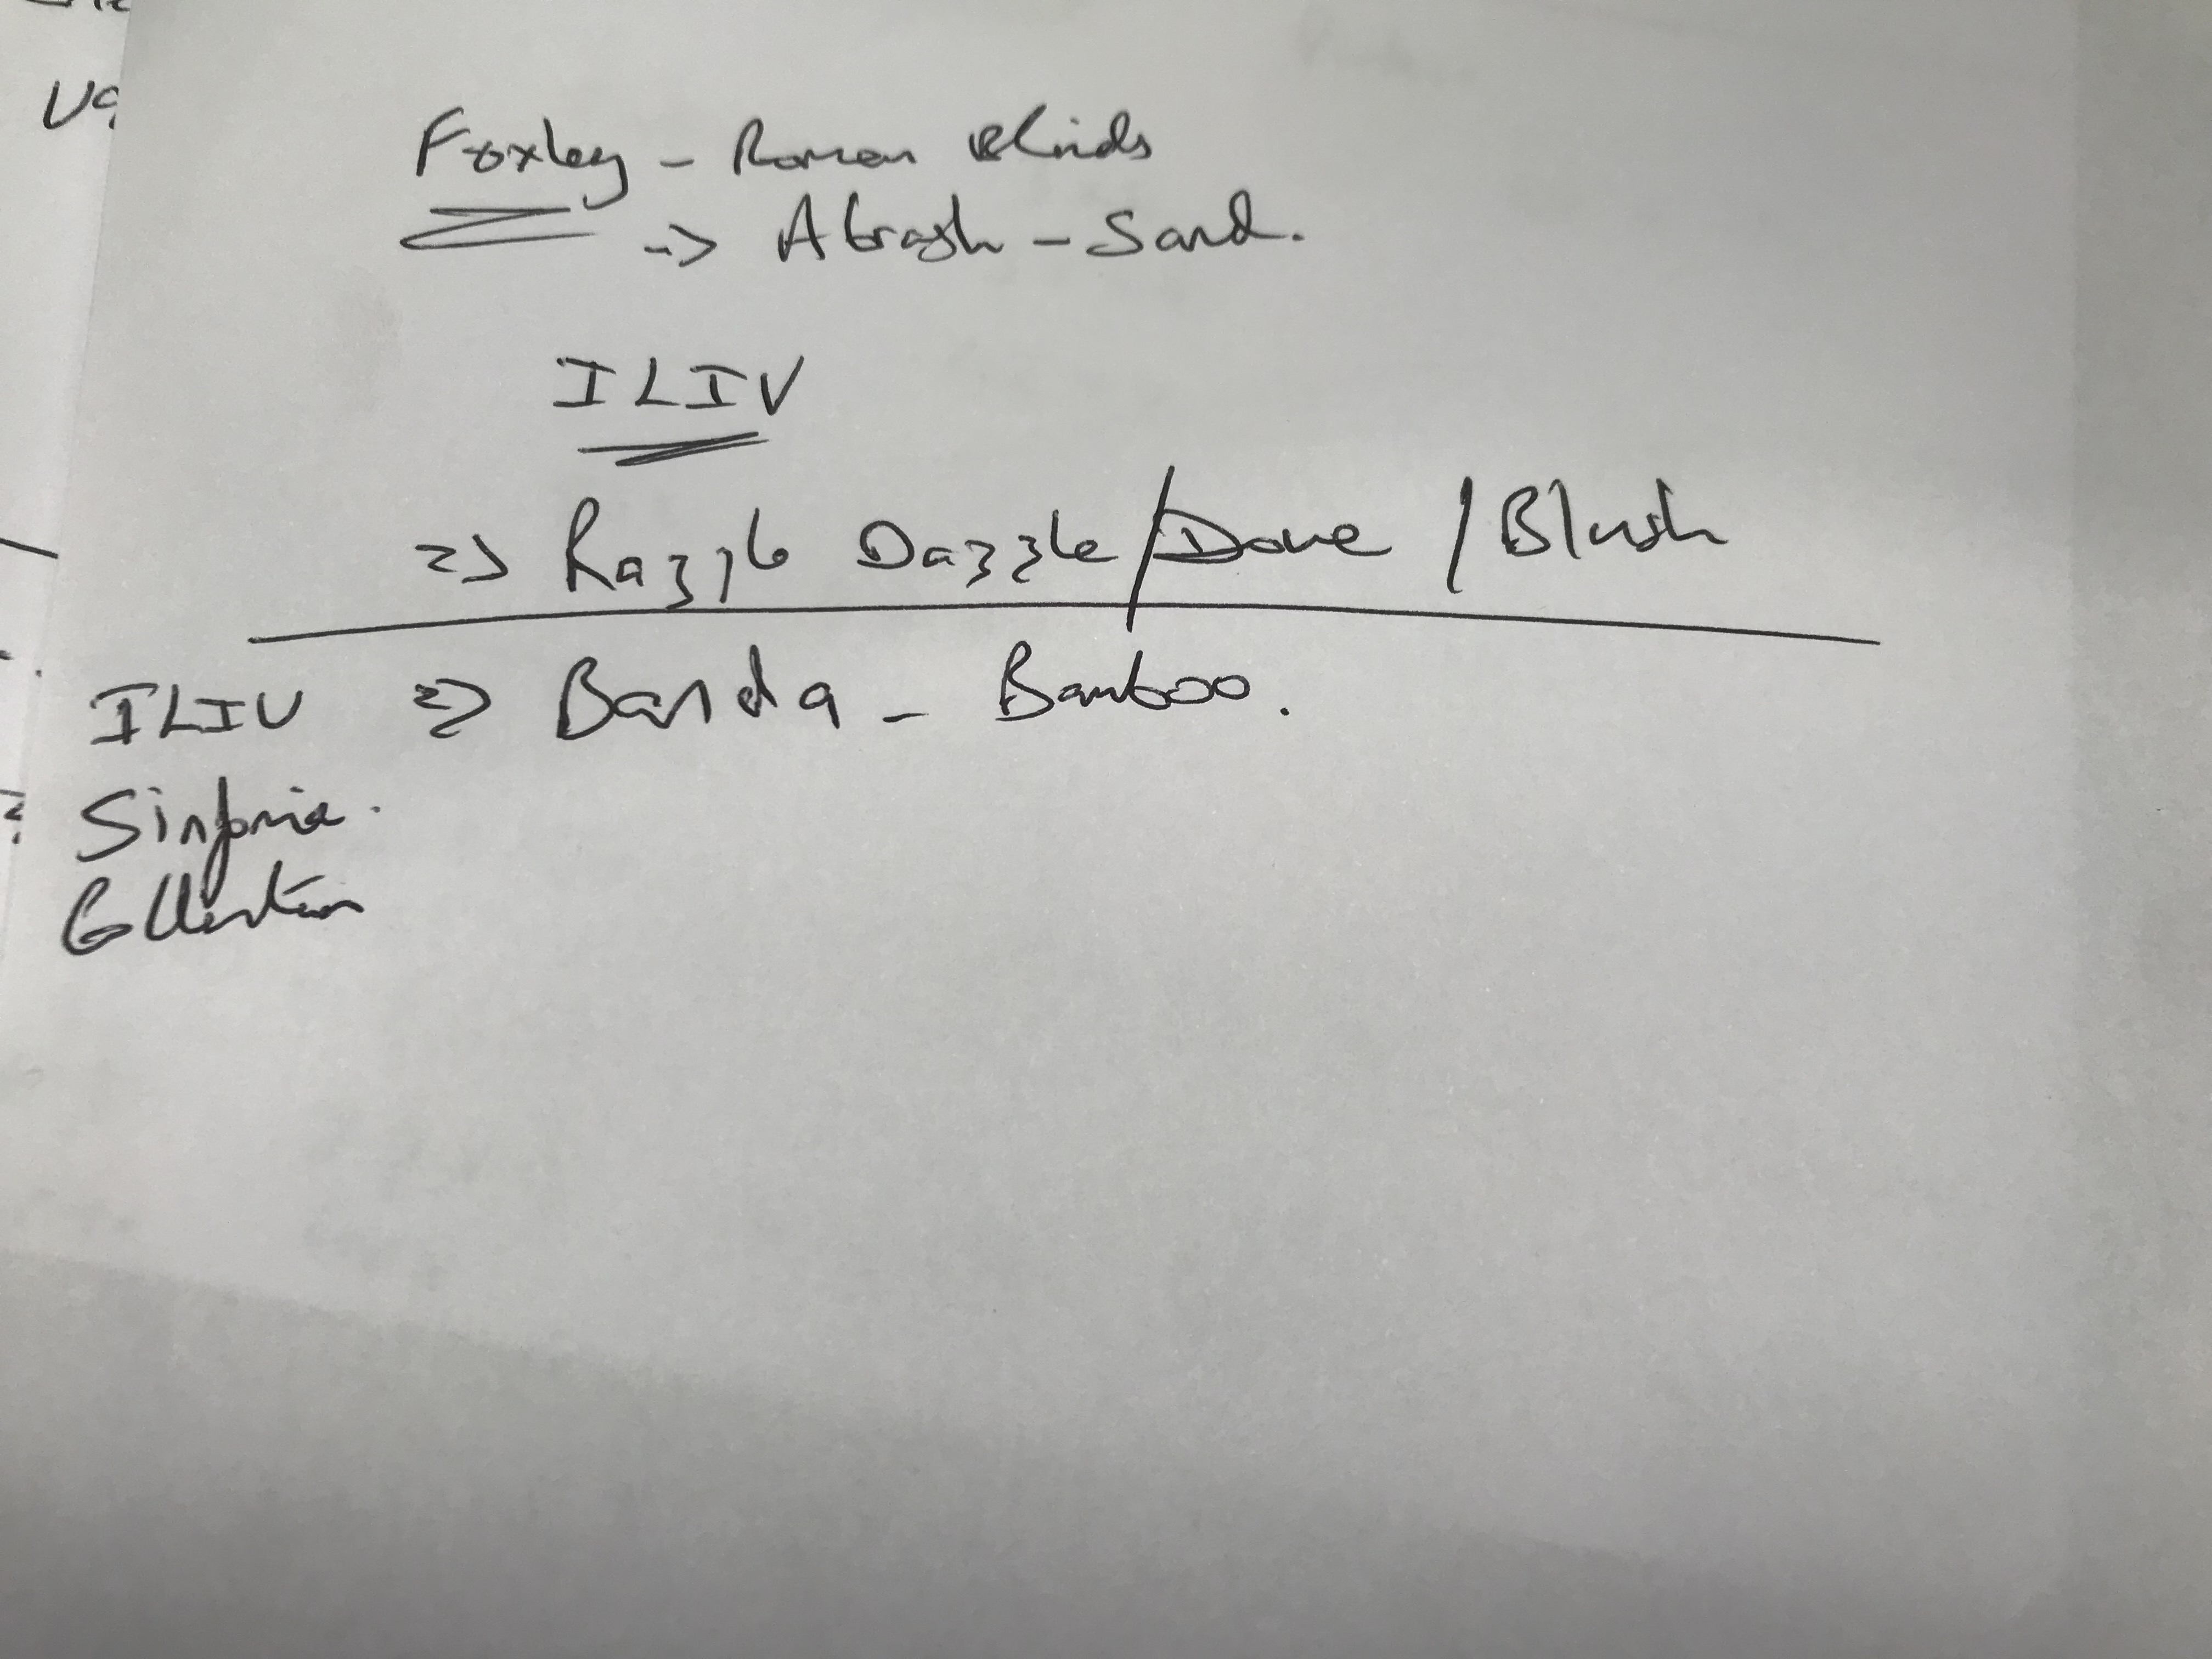 Foxley - Roman Blinds
-> Abrash - Sand.
ILIV
=> Razzle Dazzle/Dove / Blush
ILIV => Banda - Bamboo.
Sinfonia.
Collection